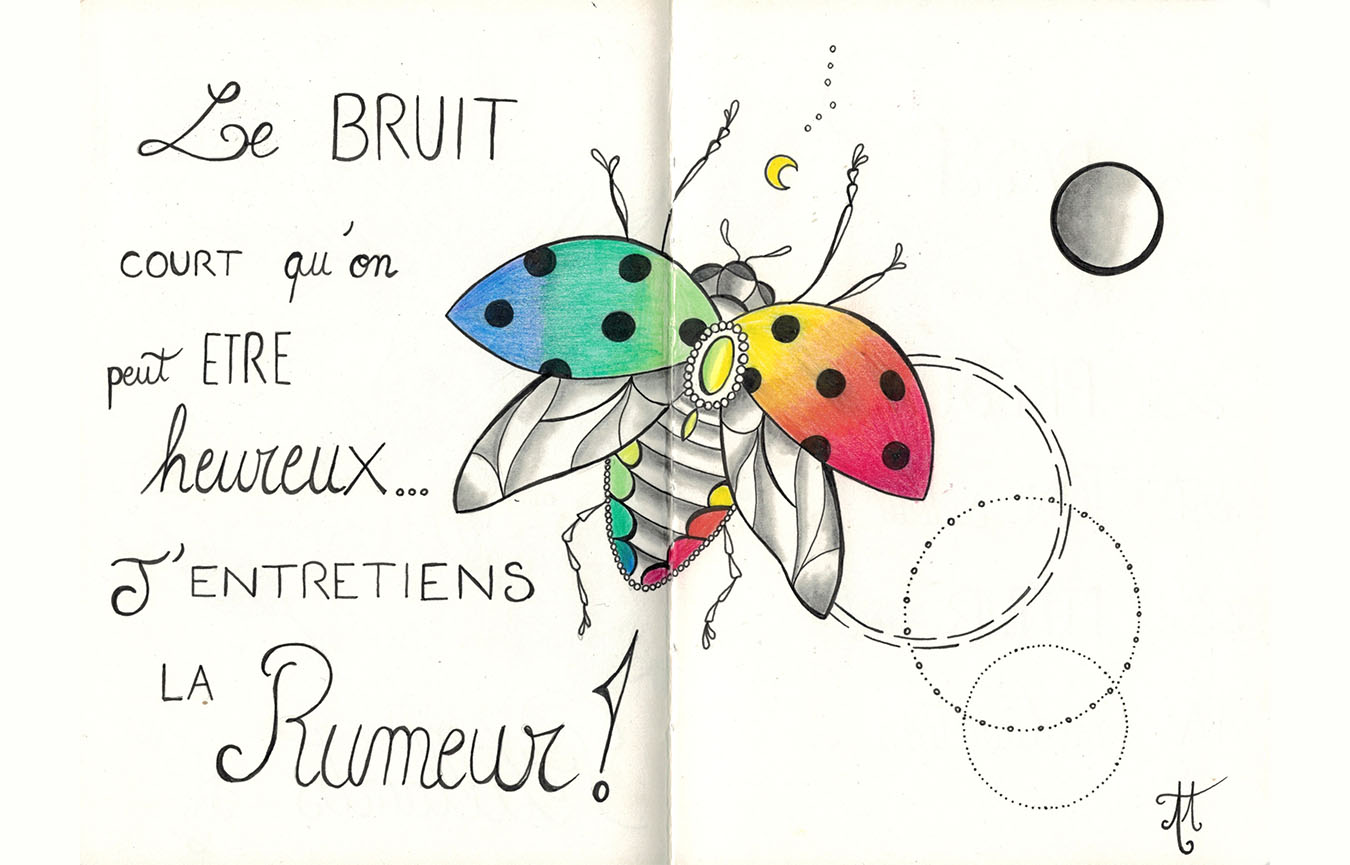 Le BRUIT
COURT qu'on
peut ETRE
heureux...
J'ENTRETIENS
LA
Rumeur!